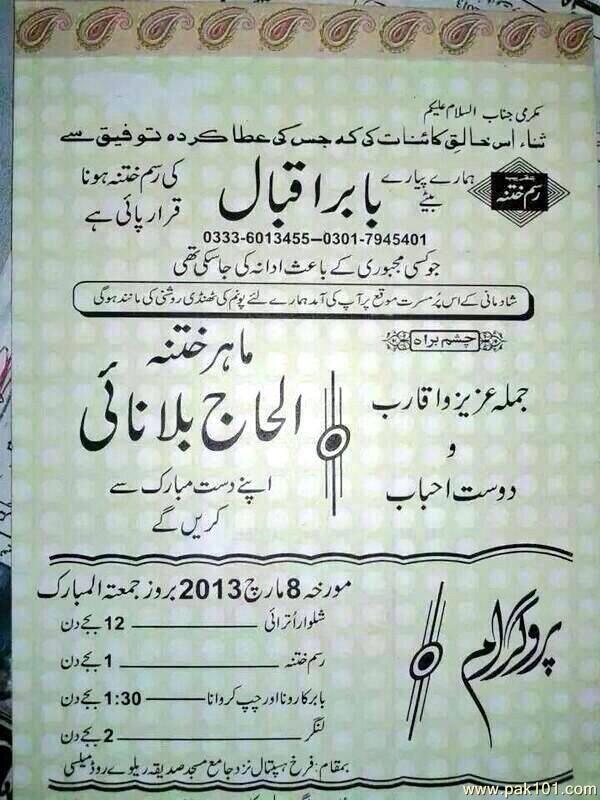 مکرمی جناب السلام علیکم
ثناء اس خالق کائنات کی کہ جس کی عطا کردہ توفیق سے
تقریب
رسم ختنہ
ہمارے پیارے بیٹے
بابر اقبال
کی رسم ختنہ ہونا قرار پائی ہے
0333-6013455–0301-7945401
جو کسی مجبوری کے باعث ادا نہ کی جا سکی تھی
شادمانی کے اس پُر مسرت موقع پر آپ کی آمد ہمارے لئے پونم کی ٹھنڈی روشنی کی مانند ہوگی
چشم براہ
جملہ عزیز و اقارب
و
دوست احباب
ماہر ختنہ
الحاج بلا نائی
اپنے دست مبارک سے
کریں گے
پروگرام
مورخہ 8 مارچ 2013 بروز جمعتہ المبارک
شلوار اُترائی 12 بجے دن
رسم ختنہ 1 بجے دن
بابر کا رونا اور چپ کروانا 1:30 بجے دن
لنگر 2 بجے دن
بمقام: فرخ ہسپتال نزد جامع مسجد صدیقہ ریلوے روڈ میلسی
www.pak101.com